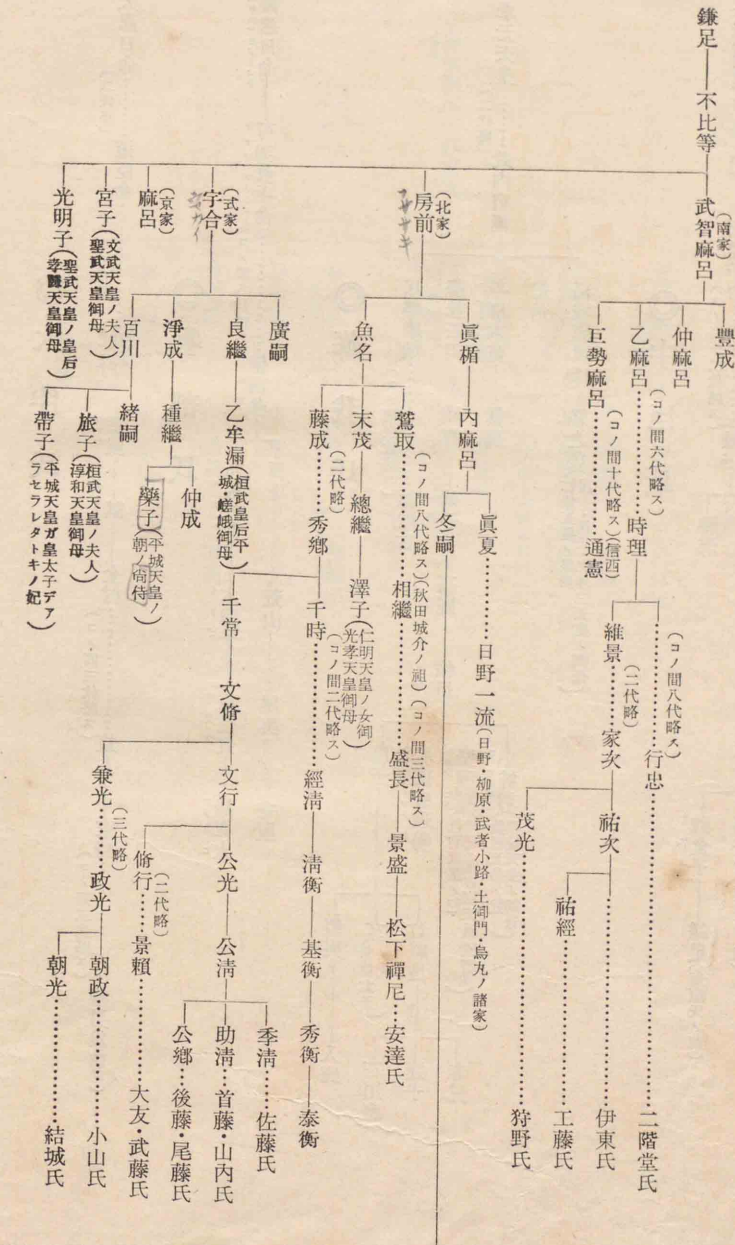 鎌足――不比等
武智麻呂(南家)
豐成
仲麻呂
乙麻呂………(コノ間六代略ス)………時理
(コノ間八代略ス)………行忠………二階堂氏
維景……(二代略)……家次
祐次………伊東氏
祐經………工藤氏
茂光………狩野氏
巨勢麻呂………(コノ間十代略ス)………通憲(信西)
房前(北家)
フササキ
眞楯――內麻呂
眞夏………日野一流(日野・柳原・武者小路・土御門・烏丸ノ諸家)
冬嗣
魚名
鷲取………(コノ間八代略ス)………相繼(秋田城介ノ祖)………(コノ間三代略ス)………盛長――景盛――松下禪尼…安達氏
末茂――總繼――澤子(仁明天皇ノ女御 光孝天皇御母)
藤成……(二代略)……秀鄕
千時………(コノ間二代略ス)………經淸――淸衡――基衡――秀衡――泰衡
千常――文脩
文行
公光――公淸
季淸…佐藤氏
助淸…首藤・山內氏
公鄕…後藤・尾藤氏
脩行……(二代略)……景賴………大友・武藤氏
兼光……(三代略)……政光
朝政………小山氏
朝光………結城氏
宇合(式家)
廣嗣
良繼――乙牟漏(桓武皇后平城・嵯峨御母)
淨成――種繼
仲成
藥子(平城天皇ノ朝ノ尙侍)
百川
緖嗣
旅子(桓武天皇ノ夫人 淳和天皇御母)
帶子(平城天皇ガ皇太子デアラセラレタトキノ妃)
麻呂(京家)
宮子(文武天皇ノ夫人 聖武天皇御母)
光明子(聖武天皇ノ皇后 孝謙天皇御母)